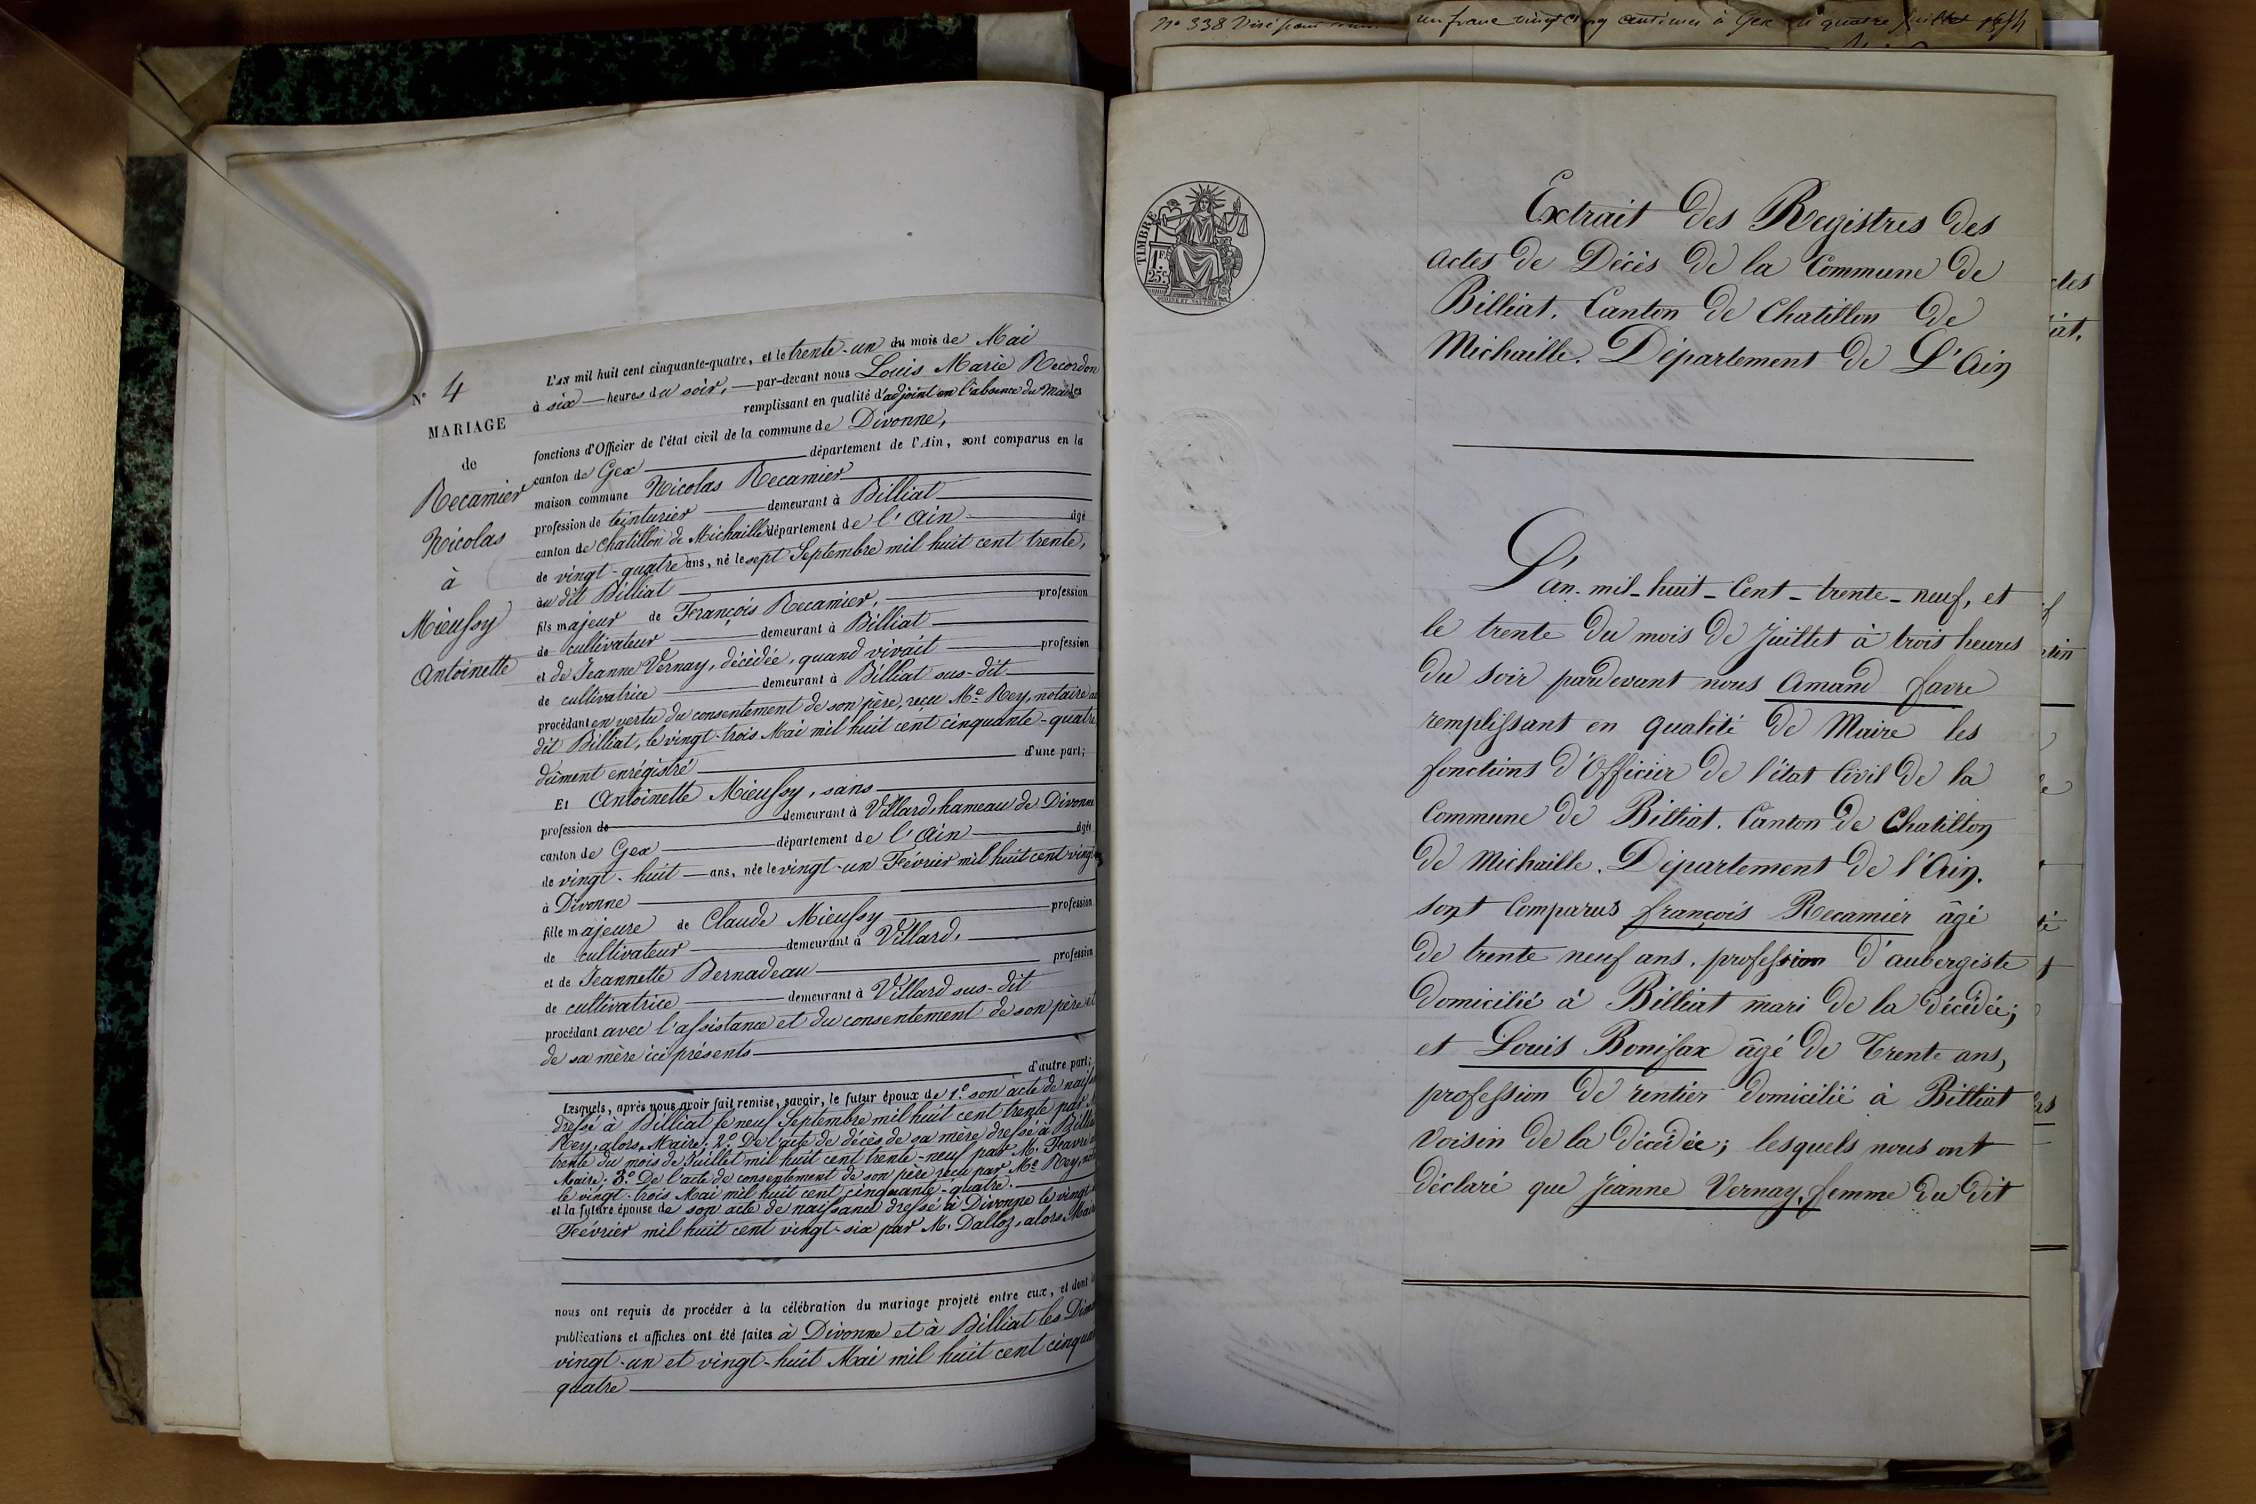 N° 338 Visé pour un franc vingt cinq centimes à Gex le quatre Juillet 1854
N° 4
MARIAGE
de
Recamier
Nicolas
à
Mieussy
Antoinette
L'AN mil huit cent cinquante-quatre, et le trente-un du mois de Mai
à six heures du soir, par-devant nous Louis Marie Recordon
remplissant en qualité d'adjoint en l'absence du Maire les
fonctions d'Officier de l'état civil de la commune de Divonne,
canton de Gex département de l'Ain, sont comparus en la
maison commune Nicolas Recamier
profession de teinturier demeurant à Billiat
canton de Chatillon de Michaille département de l'Ain âgé
de vingt-quatre ans, né le sept Septembre mil huit cent trente,
au dit Billiat
fils majeur de François Recamier, profession
de cultivateur demeurant à Billiat
et de Jeanne Vernay, décédée, quand vivait profession
de cultivatrice demeurant à Billiat sus-dit
procédant en vertu du consentement de son père, reçu Me Rey, notaire au
dit Billiat, le vingt-trois Mai mil huit cent cinquante-quatre
dûment enrégistré d'une part;
Et Antoinette Mieussy, sans
profession de demeurant à Villard, hameau de Divonne
canton de Gex département de l'Ain âgée
de vingt-huit ans, née le vingt-un Février mil huit cent vingt
à Divonne
fille majeure de Claude Mieussy profession
de cultivateur demeurant à Villard,
et de Jeannette Bernadeau profession
de cultivatrice demeurant à Villard sus-dit
procédant avec l'assistance et du consentement de son père et
de sa mère ici présents
d'autre part;
Lesquels, après nous avoir fait remise, savoir, le futur époux de 1° son acte de naiss
dressé à Billiat le neuf Septembre mil huit cent trente par M.
Rey, alors Maire; 2° De l'acte de décès de sa mère dressé à Billiat
trente du mois de Juillet mil huit cent trente-neuf par M. Favre
Maire; 3° De l'acte de consentement de son père reçu par Me Rey, not
le vingt-trois Mai mil huit cent cinquante-quatre.
et la future épouse de son acte de naissance dressé à Divonne le vingt
Février mil huit cent vingt-six par M. Dalloz, alors Maire
nous ont requis de procéder à la célébration du mariage projeté entre eux, et dont
publications et affiches ont été faites à Divonne et à Billiat les Dim
vingt-un et vingt-huit Mai mil huit cent cinqua
quatre
TIMBRE
1 F.
25 c.
Extrait des Registres des
actes de Décès de la Commune de
Billiat. Canton de Chatillon de
Michaille. Département de L'Ain
L'an mil-huit-Cent-trente-neuf, et
le trente du mois de Juillet à trois heures
du soir pardevant nous Amand favre
remplissant en qualité de Maire les
fonctions d'Officier de l'état Civil de la
Commune de Billiat. Canton de Chatillon
de Michaille. Département de l'Ain.
sont Comparus françois Recamier âgé
de trente neuf ans, profession d'aubergiste
Domicilié à Billiat mari de la Décédée;
et Louis Bonifax âgé de Trente ans,
profession de rentier domicilié à Billiat
Voisin de la Décédée; lesquels nous ont
déclaré que Jeanne Vernay, femme du dit